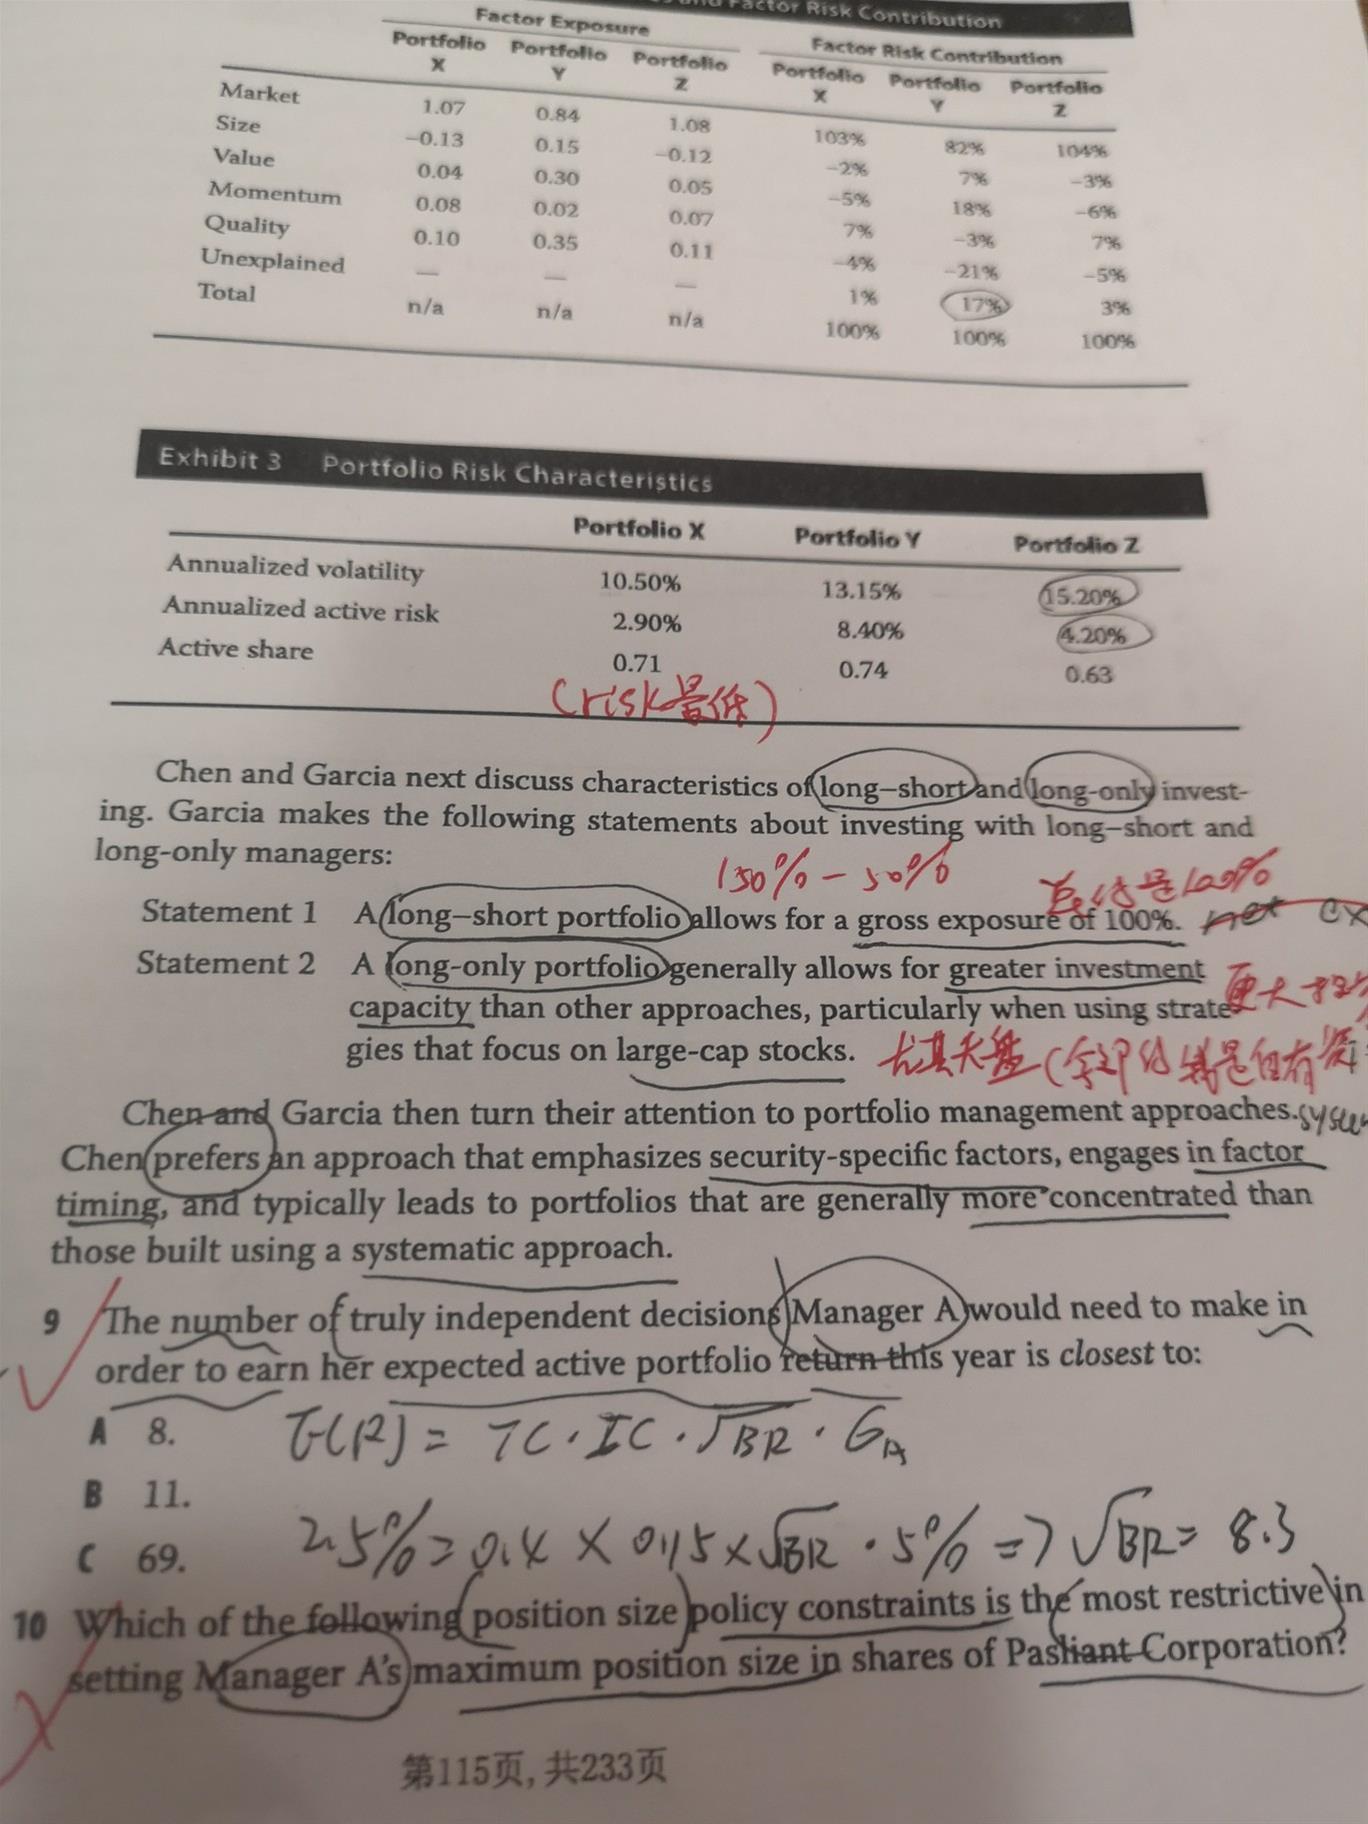 Factor Risk Contribution
Factor Exposure Factor Risk Contribution
Portfolio X Portfolio Y Portfolio Z Portfolio X Portfolio Y Portfolio Z
Market 1.07 0.84 1.08 103% 82% 104%
Size −0.13 0.15 −0.12 −2% 7% −3%
Value 0.04 0.30 0.05 −5% 18% −6%
Momentum 0.08 0.02 0.07 7% −3% 7%
Quality 0.10 0.35 0.11 −4% −21% −5%
Unexplained — — — 1% 17% 3%
Total n/a n/a n/a 100% 100% 100%
Exhibit 3 Portfolio Risk Characteristics
Portfolio X Portfolio Y Portfolio Z
Annualized volatility 10.50% 13.15% 15.20%
Annualized active risk 2.90% 8.40% 4.20%
Active share 0.71 0.74 0.63
(risk最低)
Chen and Garcia next discuss characteristics of long–short and long-only invest-
ing. Garcia makes the following statements about investing with long–short and
long-only managers:
150% − 50%
总结是100%
Statement 1 A long–short portfolio allows for a gross exposure of 100%. net ex
Statement 2 A long-only portfolio generally allows for greater investment
更大
capacity than other approaches, particularly when using strate
gies that focus on large-cap stocks. 尤其大盘
Chen and Garcia then turn their attention to portfolio management approaches.
Chen prefers an approach that emphasizes security-specific factors, engages in factor
timing, and typically leads to portfolios that are generally more concentrated than
those built using a systematic approach.
9 The number of truly independent decisions Manager A would need to make in
order to earn her expected active portfolio return this year is closest to:
A 8.
E(R) = TC · IC · √BR · σA
B 11.
2.5% = 0.4 × 0.15 × √BR · 5% => √BR = 8.3
C 69.
10 Which of the following position size policy constraints is the most restrictive in
setting Manager A's maximum position size in shares of Pashant Corporation?
第115页, 共233页